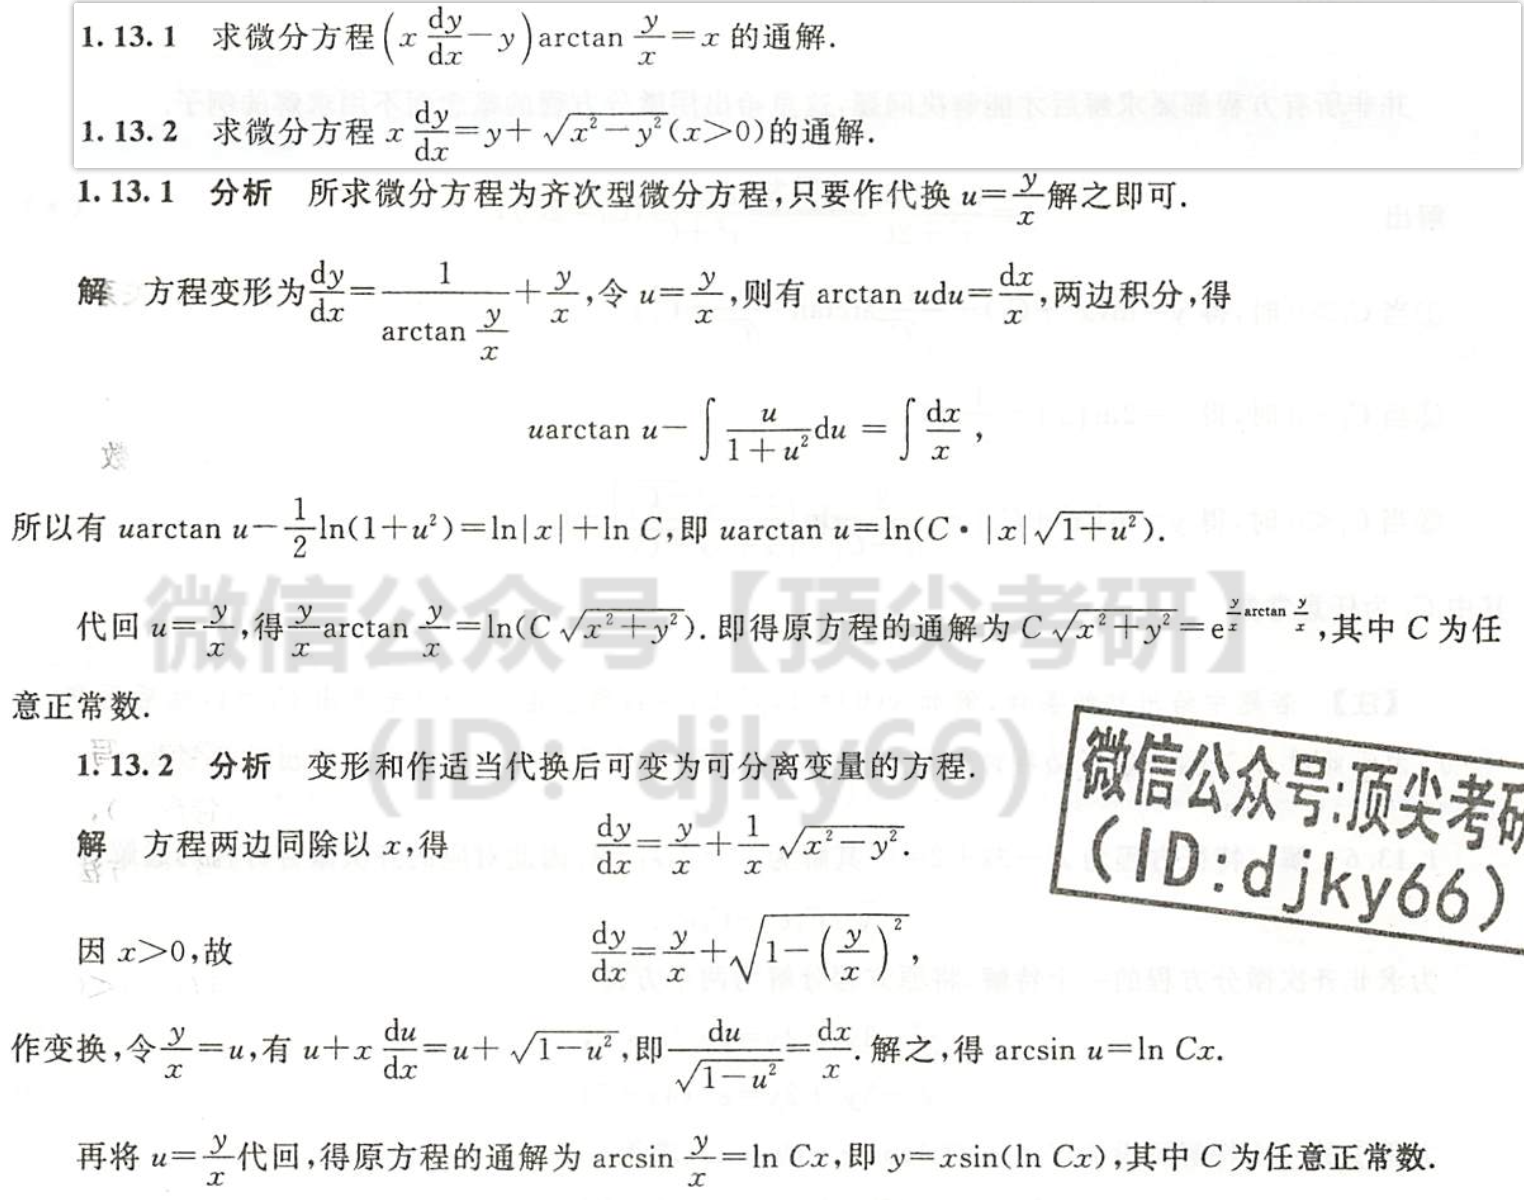 1.13.1 求微分方程(x dy/dx − y)arctan y/x = x 的通解.
1.13.2 求微分方程 x dy/dx = y + √(x² − y²)(x>0)的通解.
1.13.1 分析 所求微分方程为齐次型微分方程,只要作代换 u = y/x 解之即可.
解 方程变形为 dy/dx = 1/(arctan y/x) + y/x, 令 u = y/x, 则有 arctan udu = dx/x, 两边积分,得
uarctan u − ∫ u/(1+u²) du = ∫ dx/x ,
所以有 uarctan u − 1/2 ln(1+u²) = ln|x| + ln C, 即 uarctan u = ln(C · |x|√(1+u²)).
代回 u = y/x, 得 y/x arctan y/x = ln(C √(x²+y²)). 即得原方程的通解为 C √(x²+y²) = e^(y/x arctan y/x), 其中 C 为任
意正常数.
1.13.2 分析 变形和作适当代换后可变为可分离变量的方程.
解 方程两边同除以 x,得 dy/dx = y/x + 1/x √(x² − y²).
因 x>0,故 dy/dx = y/x + √(1 − (y/x)²),
作变换,令 y/x = u,有 u + x du/dx = u + √(1−u²), 即 du/√(1−u²) = dx/x. 解之,得 arcsin u = ln Cx.
再将 u = y/x 代回,得原方程的通解为 arcsin y/x = ln Cx, 即 y = xsin(ln Cx), 其中 C 为任意正常数.
微信公众号【顶尖考研】
(ID: djky66)
微信公众号:顶尖考研
(ID:djky66)